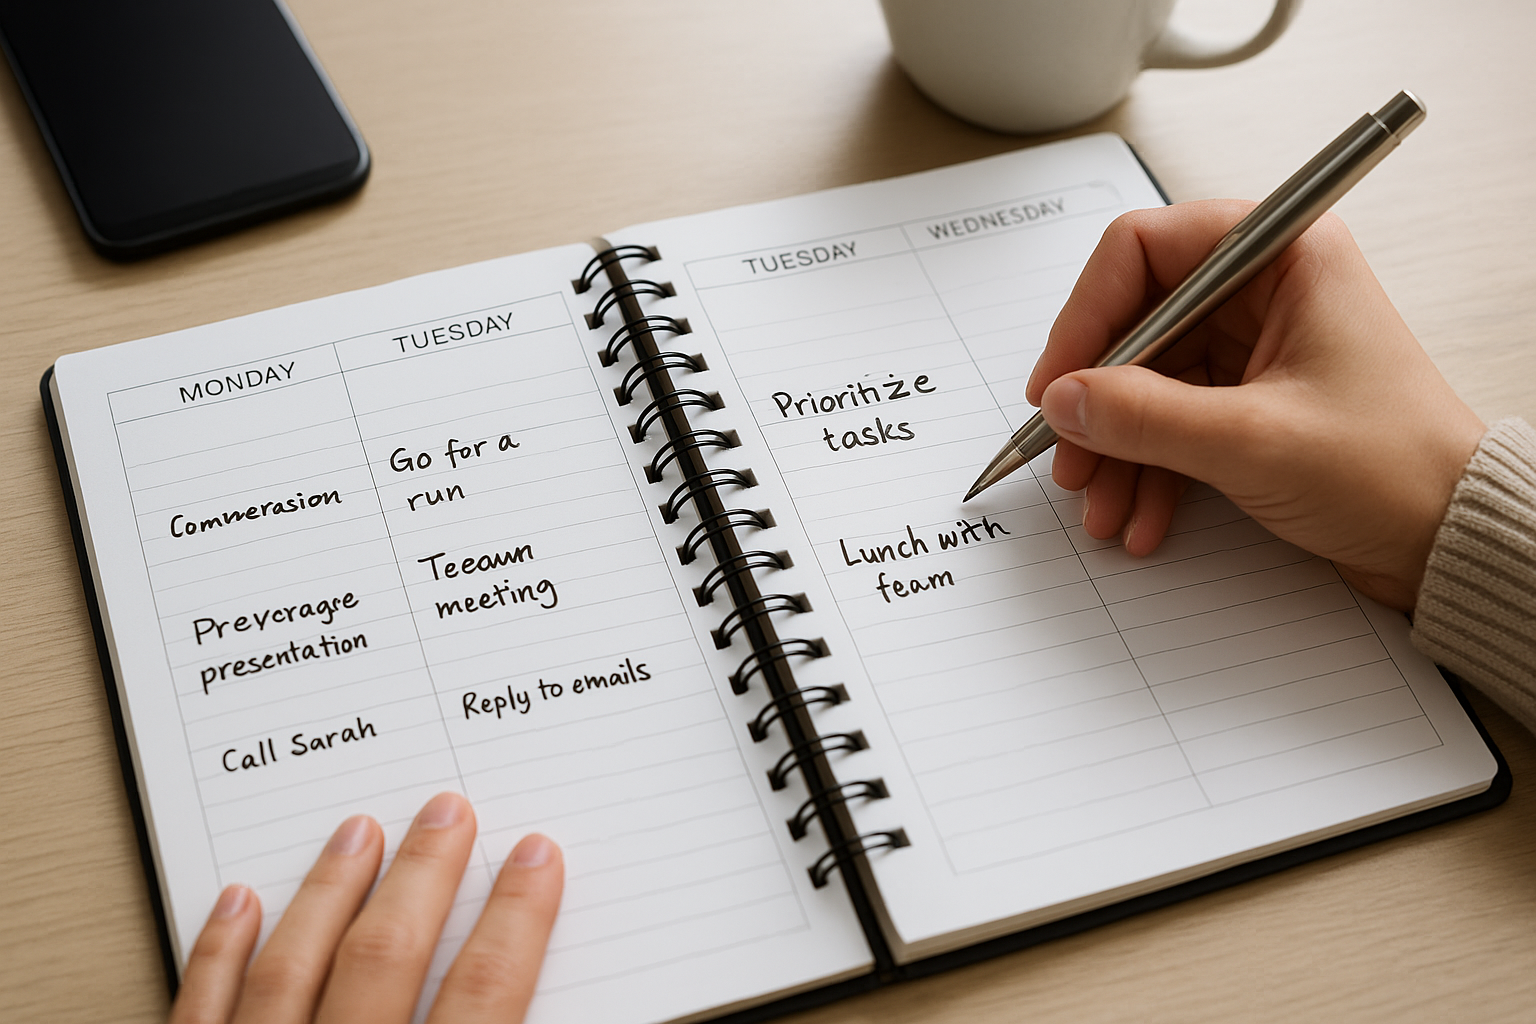 MONDAY
TUESDAY
Commerasion
Prevcragre
presentation
Call Sarah
Go for a
run
Teeawn
meeting
Reply to emails
TUESDAY
WEDNESDAY
Prioritize
tasks
Lunch with
feam